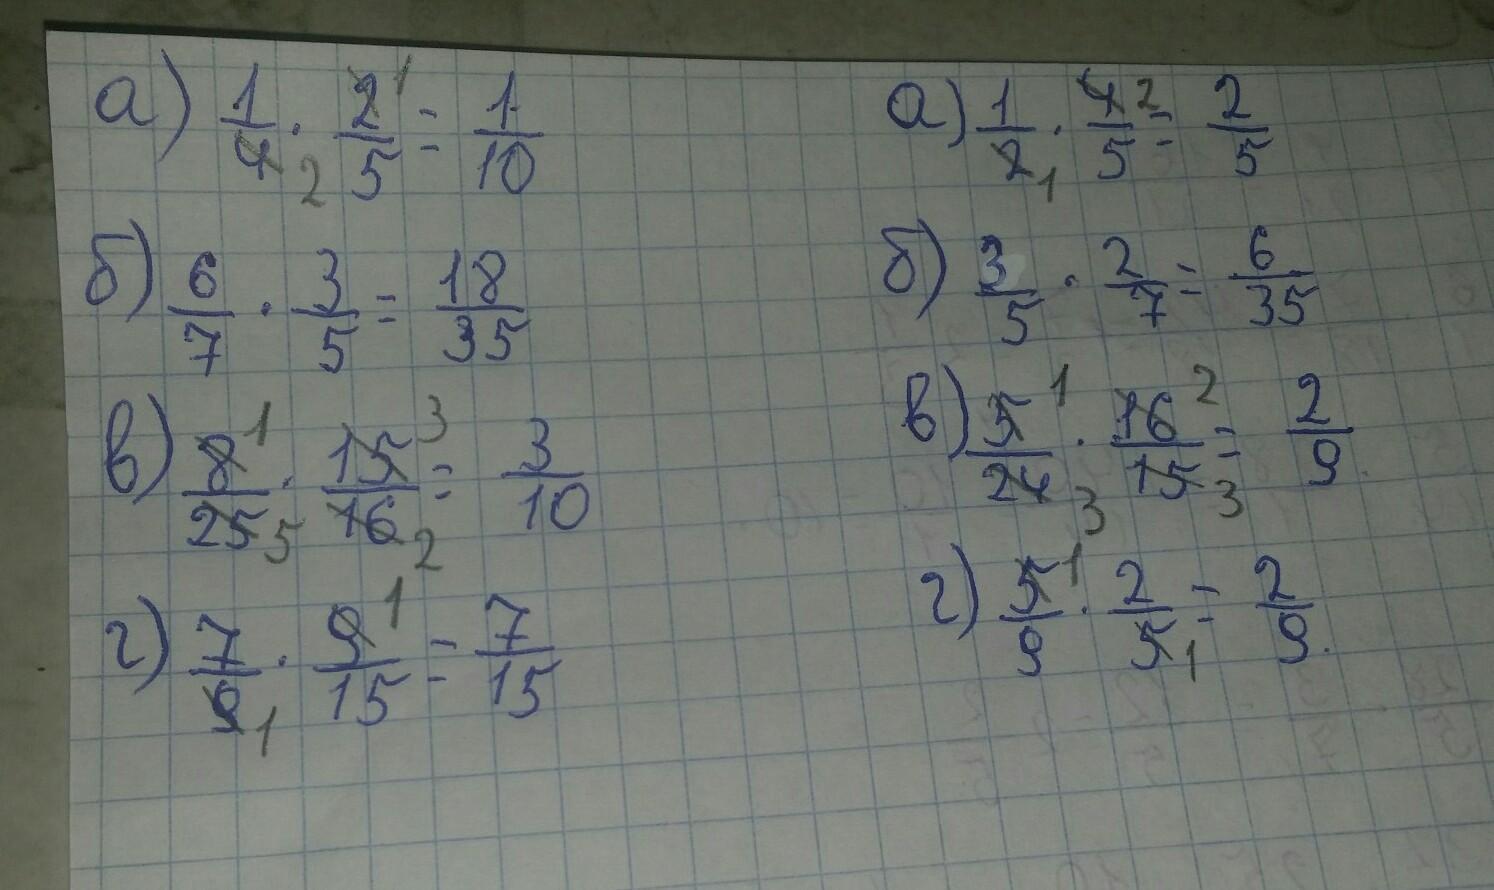 а) 1/4 2 · 2 1/5 = 1/10
б) 6/7 · 3/5 = 18/35
в) 8 1/25 5 · 15 3/16 2 = 3/10
г) 7/9 1 · 9 1/15 = 7/15
а) 1/2 1 · 4 2/5 = 2/5
б) 3/5 · 2/7 = 6/35
в) 5 1/24 3 · 16 2/15 3 = 2/9
г) 5 1/9 · 2/5 1 = 2/9.